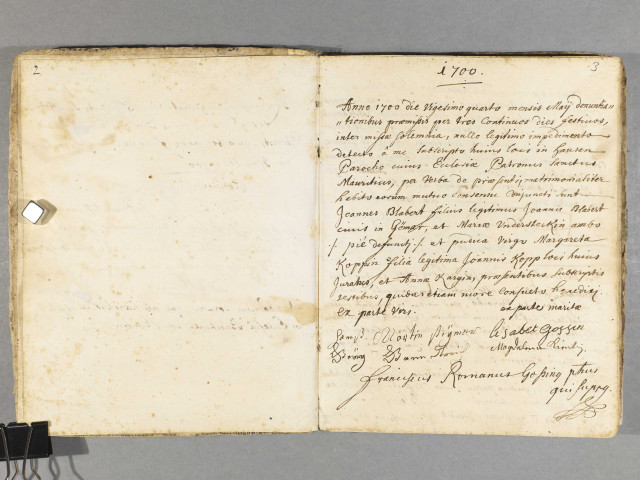 2
3
1700.
Anno 1700 die Vigesimo quarto mensis Maÿ denuntia
tionibus præmissis per tres Continuos dies festivos,
inter missæ solemnia, nullo legitimo impedimento
detecto à me subscripto huius loci in hausen
Parocho cuius Eclesiæ Patronus Sanctus
Mauritius, per verba de præsenti matrimonialiter
habito eorum mutuo consensu conjuncti sunt
Joannes Blabert filius legitimus Joannis Blabert
civis in et Mariæ ambo
pié defuncti et pudica Virgo Margareta
Koppin filia legitima Joannis Kopp loci huius
Jurati, et Annæ Kargin, præsentibus subscriptis
testibus, quibus etiam more consueto
Ex parte viri. ex parte maritæ
Martin Elisabet
Magdalena
Franciscus Romanus Gossing
qui supra